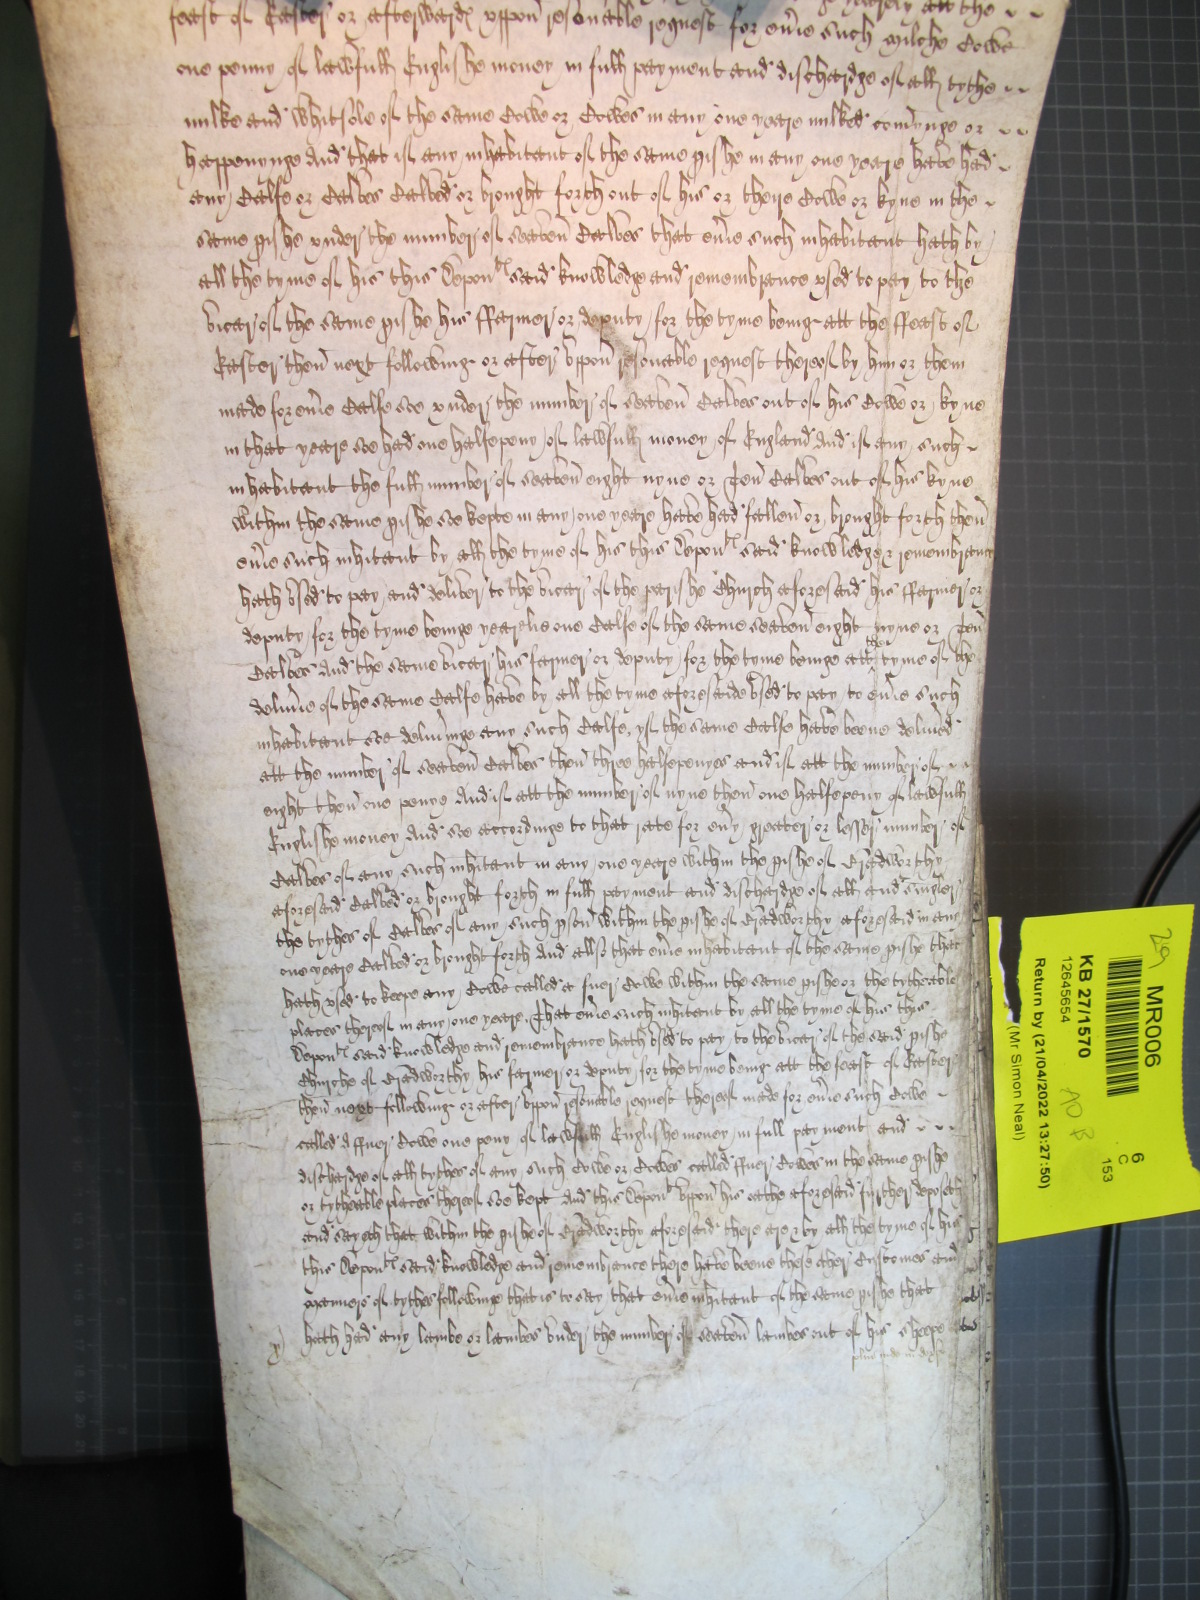 yearely att the
feast of Easter or afterward uppon resonable request for eu'ie such milche Cowe
one penny of lawfull Englishe money in full payment and dischardge of all tythe
milke and whitsole of the same Cowe or Cowes in any one yeare milked comynge or
happonynge And that if any inhabitant of the same p'ishe in any one yeare have had
any Calfe or Calves Calved or brought forth out of his or theire Cowe or kyne in the
same p'ishe vnder the number of seaven Calves that eu'ie such inhabitant hath by
all the tyme of his this Depon'tes said knowledge and remembrance vsed to pay to the
vicar of the same p'ishe his ffarmer or deputy for the tyme being att the ffeast of
Easter then next following or after vppon resonable request thereof by him or them
made for eu'ie Calfe soe vnder the number of seaven Calves out of his Cowe or kyne
in that yeare soe had one halfepeny of lawfull money of England And if any such
inhabitant the full number of seaven eight nyne or Ten Calves out of his kyne
within the same p'ishe soe kepte in any one yeare have had fallen or brought forth then
eu'ie such inhitant by all the tyme of his this Depon'tes said knowledge & remembrance
hath vsed to pay and deliver to the vicar of the parishe Church aforesaid his ffarmer or
deputy for the tyme beinge yearelie one Calfe of the same seaven eight nyne or Ten
Calves And the same vicar his farmer or deputy for the tyme beinge att the tyme of the
deliu'ie of the same Calfe have by all the tyme aforesaide vsed to pay to eu'ie such
inhabitant soe deliu'inge any such Calfe, yf the same Calfe have beene deliu'ed
att the number of seaven Calves then three halfepenyes and if att the number of
eight then one penye And if att the number of nyne then one halfepeny of lawfull
Englishe money And soe accordinge to that rate for eu'y greatter or lesser number of
Calves of any such inhitant in any one yeare within the p'ishe of Bradworthy
aforesaid Calved or brought forth in full payment and dischardge of all and singler
the tythes of Calves of any such p'son within the p'ishe of Bradworthy aforesaid in any
one yeare Calved or brought forth And allso that eu'ie inhabitant of the same p'ishe that
hath vsed to keepe any Cowe called a fuer Cowe within the same p'ishe or the tytheable
places thereof in any one yeare. That eu'ie such inhitant by all the tyme of his this
Depon'tes said knowledge and remembrance hath vsed to pay to the vicar of the said p'ishe
Churche of Bradworthy his farmer or deputy for the tyme being att the feast of Easter
then next following or after vppon resonable request thereof made for eu'ie such Cowe
called a ffuer Cowe one peny of lawfull Englishe money in full payment and
dischardge of all tythes of any such Cowe or Cowes called ffuer Cowes in the same p'ishe
or tytheable places thereof soe kept And this Depon't vpon his oathe aforesaid further deposeth
and sayeth that within the p'ishe of Bradworthy aforesaid there are & by all the tyme of his
this Depon'tes said knowledge and remembrance there have beene these other Customes and
manners of tythes followinge that is to say that eu'ie inhitant of the same p'ishe that
hath had any lambe or lambes vnder the number of seaven lambes out of his sheepe
291 MR006
KB 27/1570
12645654
Return by (21/04/2022 13:27:50)
(Mr Simon Neal)
6
C
153